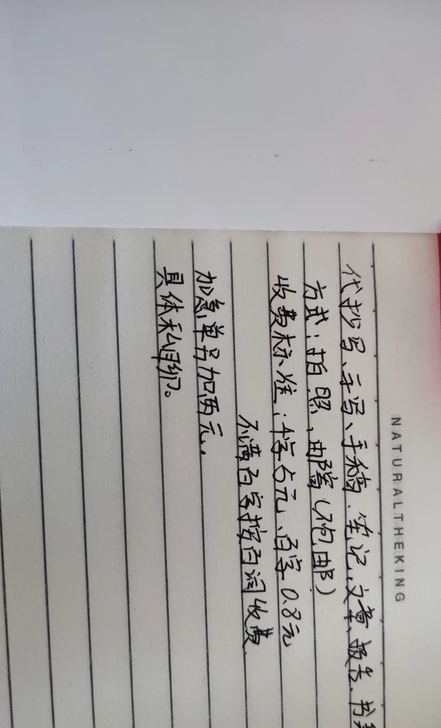 NATURALTHEKING
代抄写、手写、手稿、笔记、文章、报告、书
方式：拍照、邮寄（不包邮）
收费标准：千字5元、百字0.8元
不满百字按百词收费
加急单另加两元。
具体私聊。